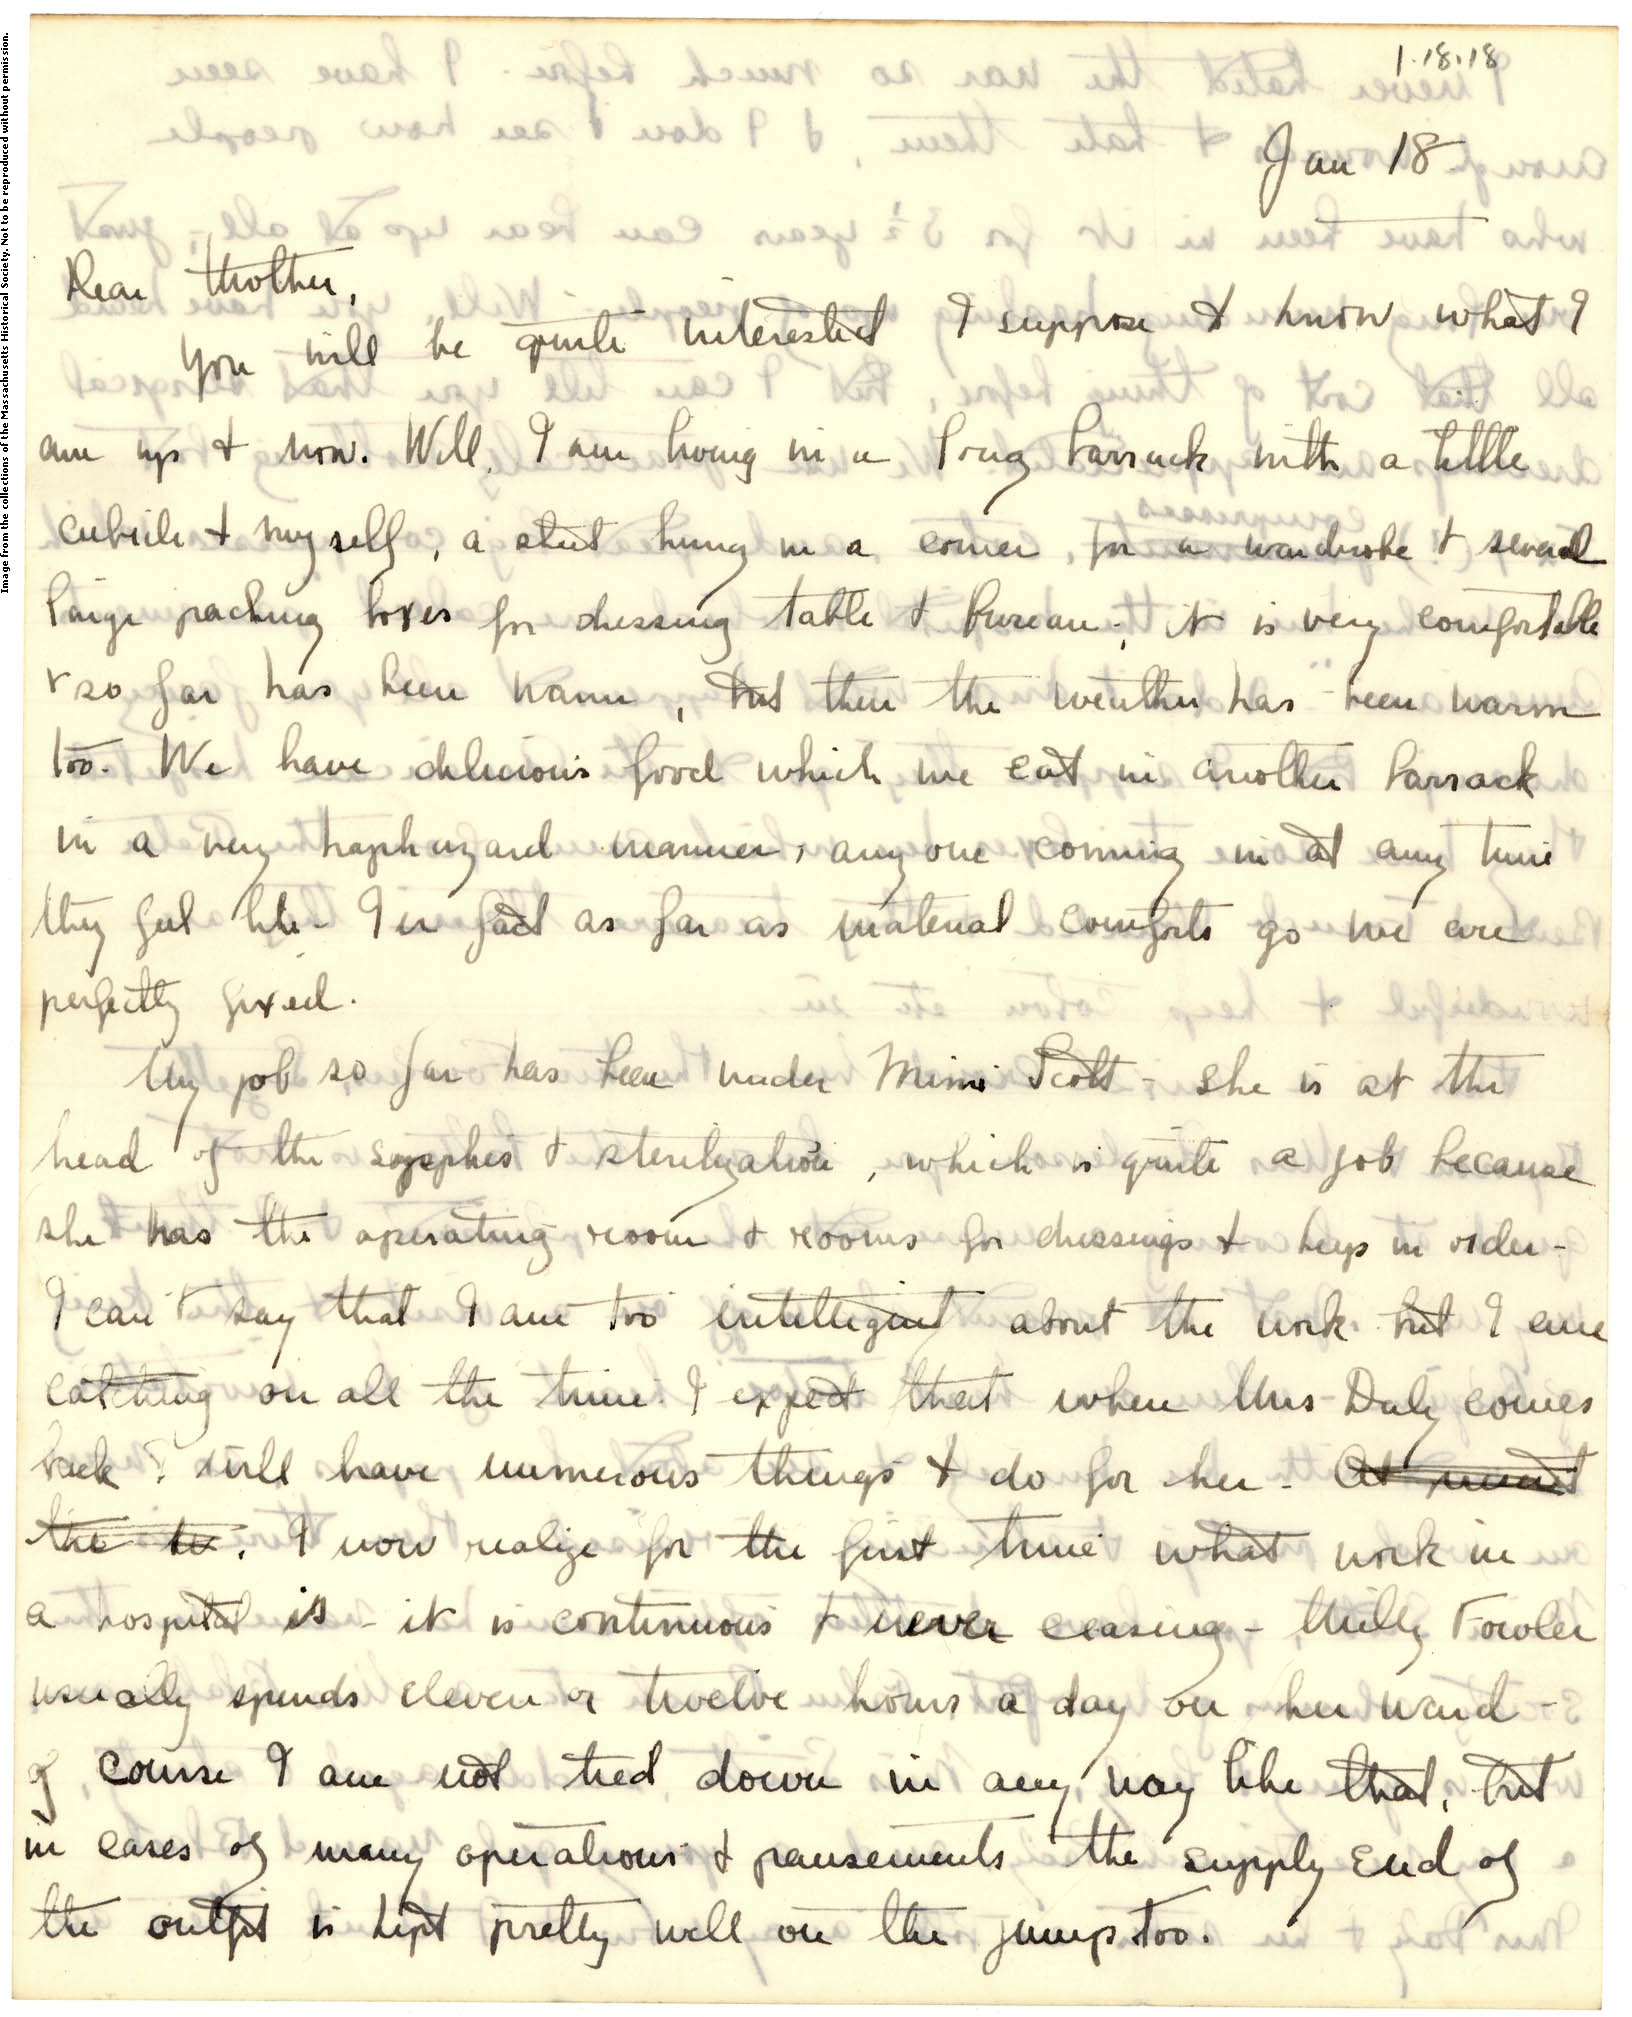 Image from the collections of the Massachusetts Historical Society. Not to be reproduced without permission.
1.18.18
Jan 18
Dear Mother,
You will be quite interested I suppose to know what I
am up to now. Well, I am living in a long barrack with a little
cubicle to myself, a sheet hung in a corner for a wardrobe & several
large packing boxes for dressing table & bureau; it is very comfortable
& so far has been warm, but then the weather has been warm
too. We have delicious food which we eat in another barrack
in a very haphazard manner, anyone coming in at any time
they feel like - In fact as far as material comforts go we are
perfectly fixed.
My job so far has been under Mimi Scott - she is at the
head of the supplies & sterilization, which is quite a job because
she has the operating room & rooms for dressings to keep in order -
I can't say that I am too intelligent about the work but I am
catching on all the time. I expect that when Mrs Daly comes
back I will have numerous things to do for her - At
the I now realize for the first time what work in
a hospital is - it is continuous & never ceasing - Milly Fowler
usually spends eleven or twelve hours a day on her ward -
of course I am not tied down in any way like that, but
in cases of many operations & pansements the supply end of
the outfit is kept pretty well on the jump too.